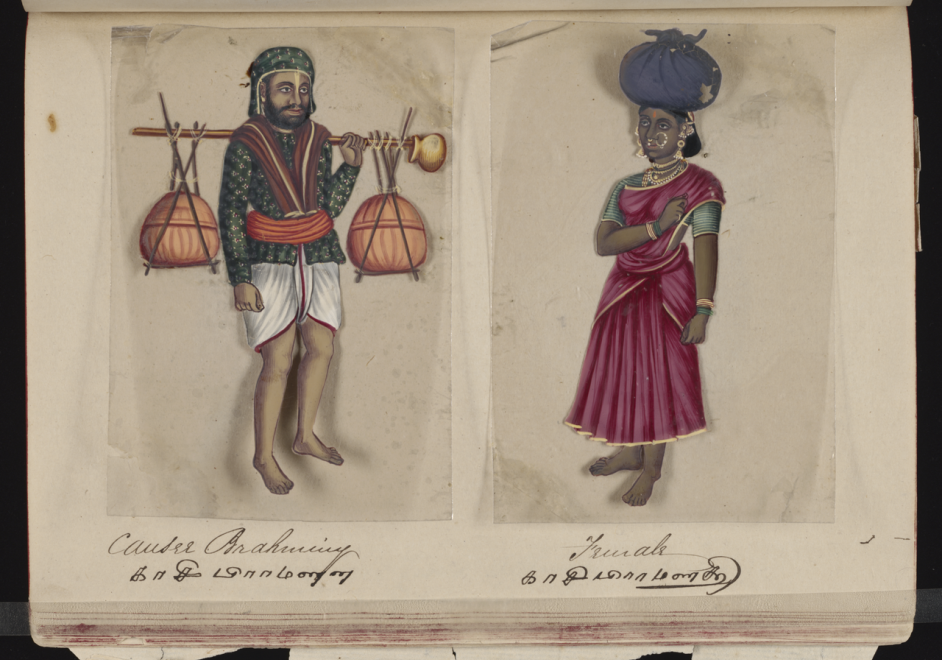 Causee Brahminy
காசி பிராமணன்
Female
காசி பிராமணத்தி